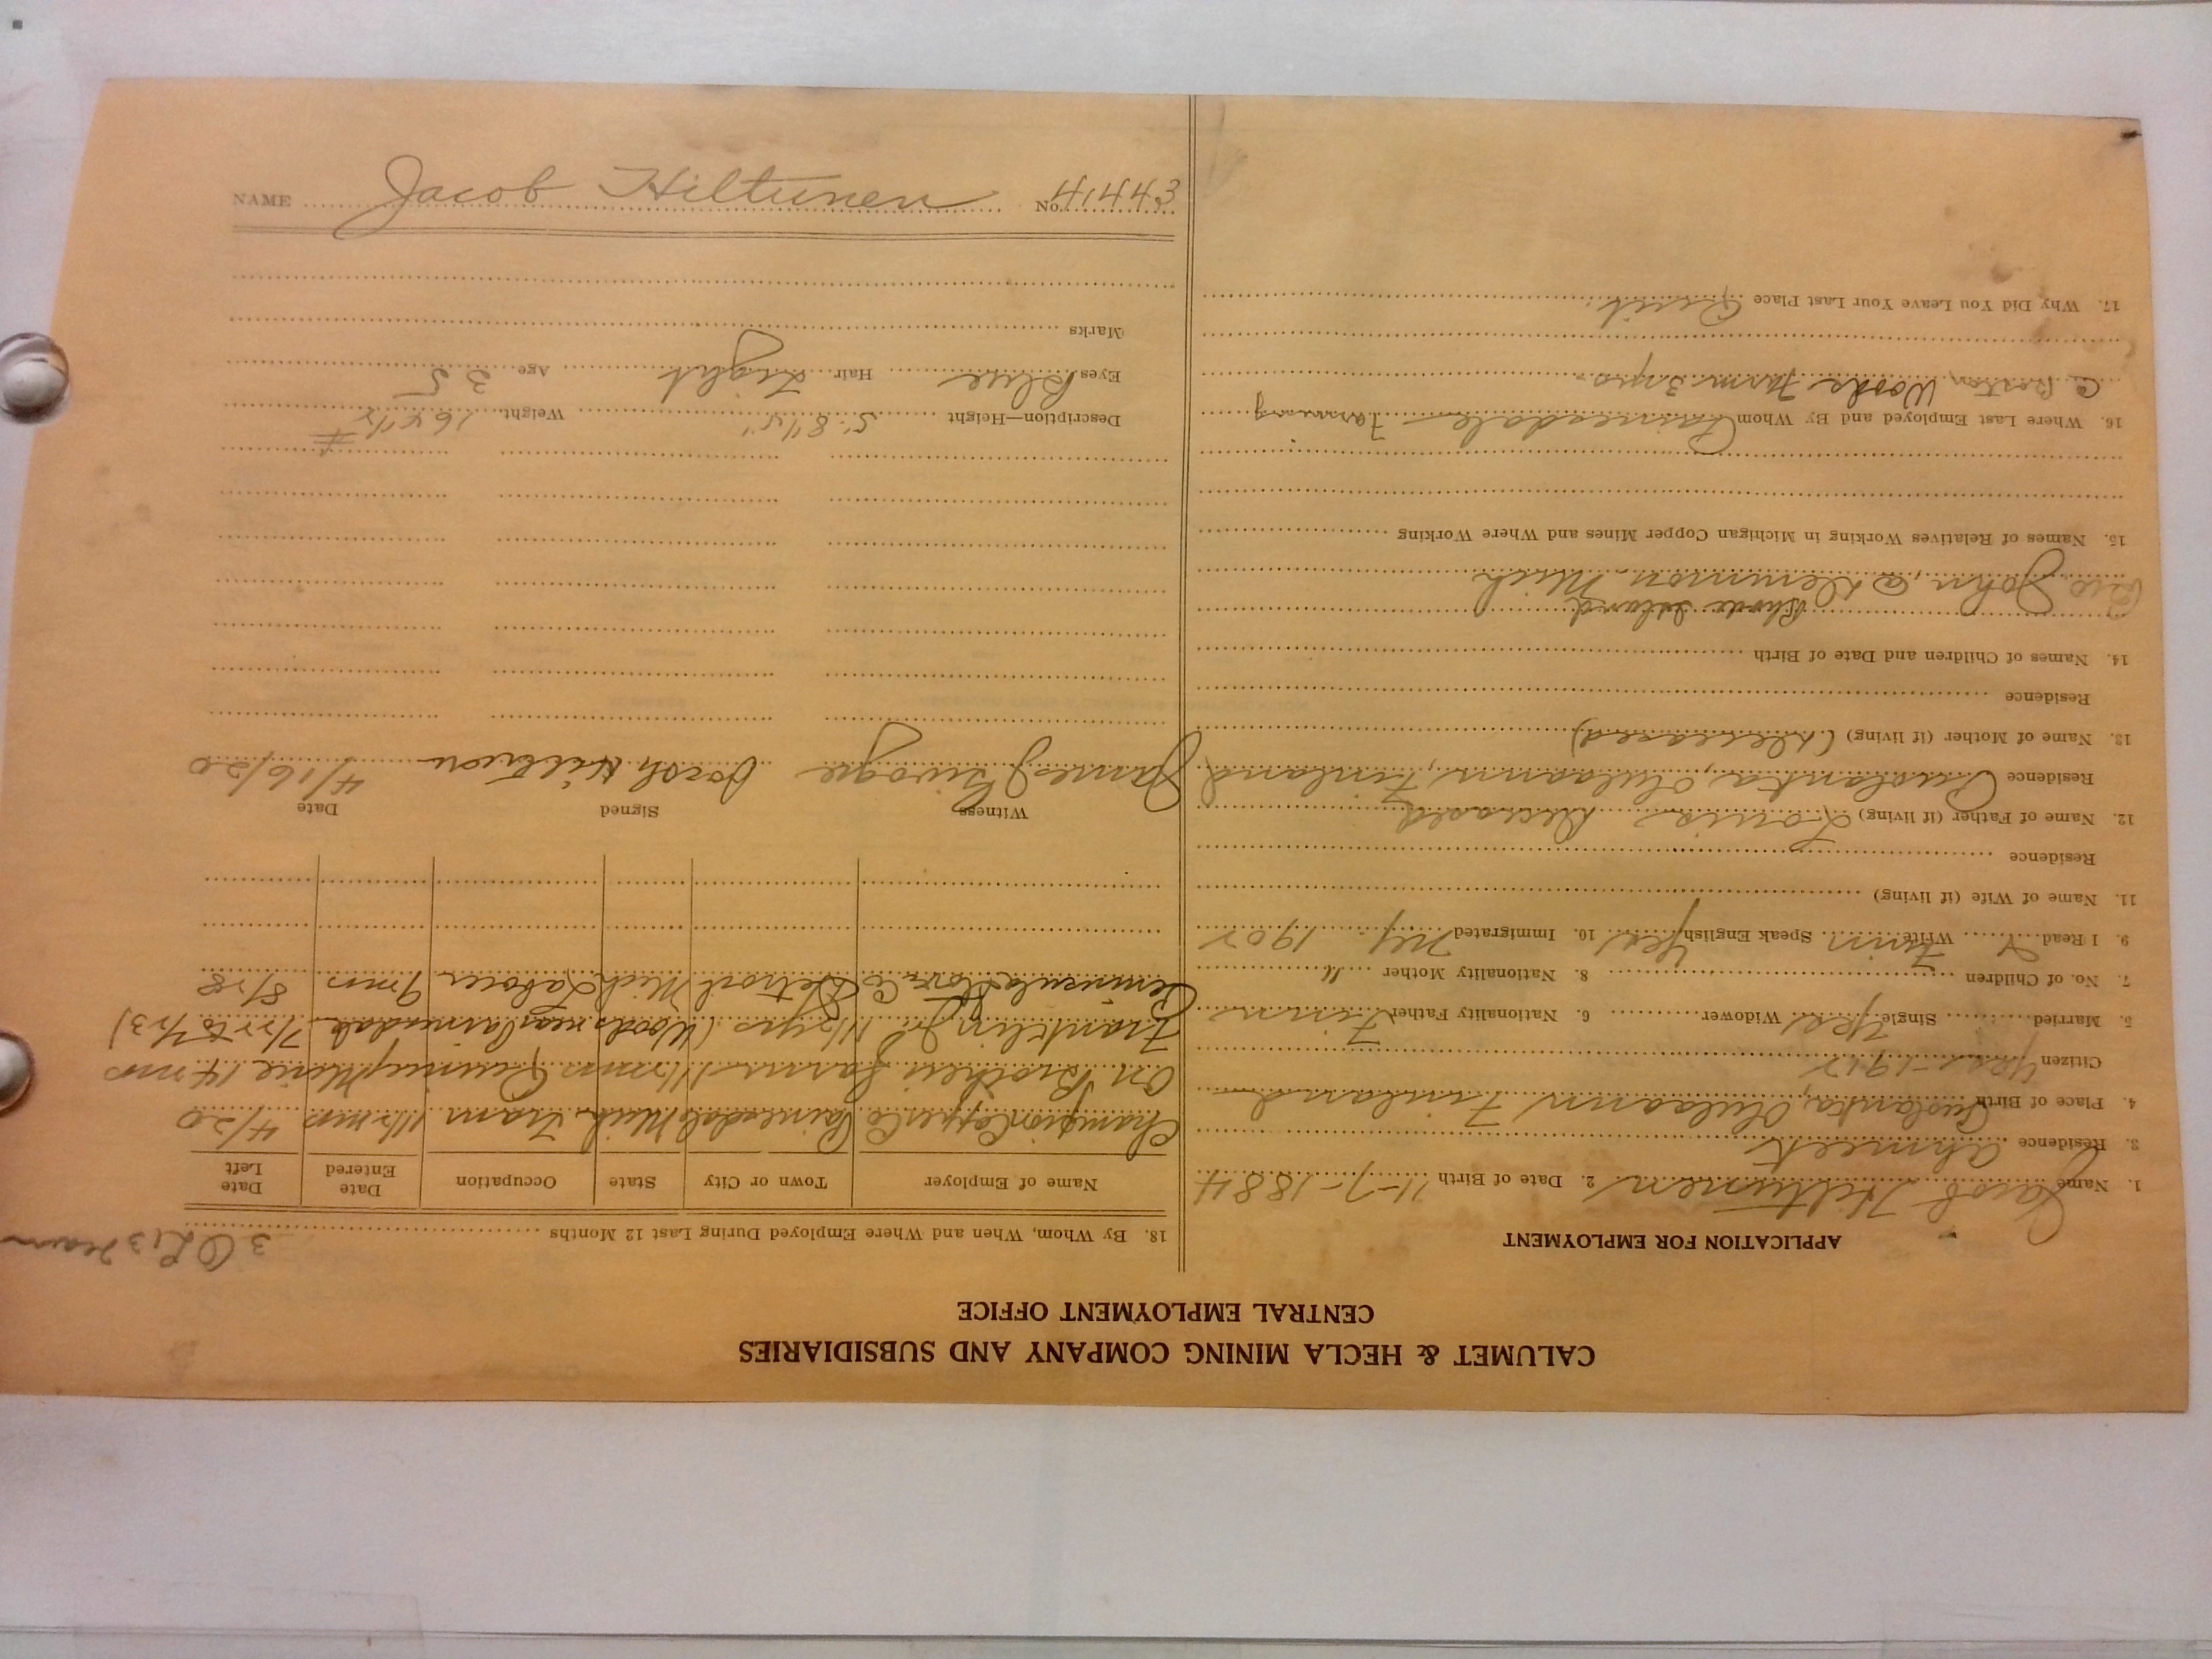 CALUMET & HECLA MINING COMPANY AND SUBSIDIARIES
CENTRAL EMPLOYMENT OFFICE
APPLICATION FOR EMPLOYMENT
1. Name Jacob Hiltunen 2. Date of Birth 11-7-1884
3. Residence Ahmeek
4. Place of Birth Puolanka, Oulaann Finland
Citizen Yes - 1912
5. Married Single Yes Widower 6. Nationality Father Finn
7. No. of Children 8. Nationality Mother "
9. I Read Write Finn Speak English Yes 10. Immigrated NY 1902
11. Name of Wife (if living)
Residence
12. Name of Father (if living) Louis Deceased
Residence Puolanka, Oulaann, Finland
13. Name of Mother (if living) (Deceased)
Residence
14. Names of Children and Date of Birth
Rhode Island
Bro John, @ Mich
15. Names of Relatives Working in Michigan Copper Mines and Where Working
16. Where Last Employed and By Whom Painesdale Farming
@ Woods Farm 3 yrs.
17. Why Did You Leave Your Last Place Quit.
18. By Whom, When and Where Employed During Last 12 Months
Name of Employer Town or City State Occupation Date Entered Date Left
Champion Copper Co Painesdale Mich. Tram 11/2 mos 4/20
On Brothers farm Quincy Mine 14 mos
Franklin Jr. 11/2 yrs (Woods near Painesdale 7/22 to 7/23)
Peninsula Stove Co Detroit Mich Laborer 9 mos 8/28
Witness Signed Date
James J Jacob Hiltunen 4/16/20
Description—Height 5' 8 1/4" Weight 164 1/2 #
Eyes Blue Hair Light Age 35
Marks
NAME Jacob Hiltunen No. 41443